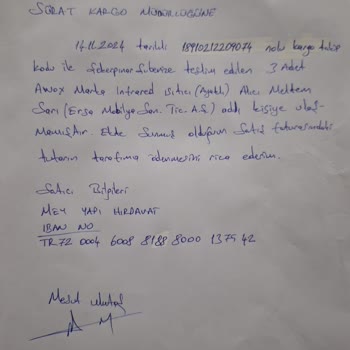 SÜRAT KARGO MÜDÜRLÜĞÜNE
14.11.2024 tarihli 18910212209074 nolu kargo takip
kodu ile şekerpınar şubenize teslim edilen 3 Adet
Awox Marka Infrared ısıtıcı (Ayaklı) Alıcı Meltem
Sarı (Ersa Mobilya San. Tic. A.Ş.) adlı kişiye ulaş-
mamıştır. Ekte sunmuş olduğum satış faturasındaki
tutarın tarafıma ödenmesini rica ederim.
Satıcı Bilgileri
MEY YAPI HIRDAVAT
IBAN NO
TR72 0004 6008 8188 8000 1375 42
Mesut